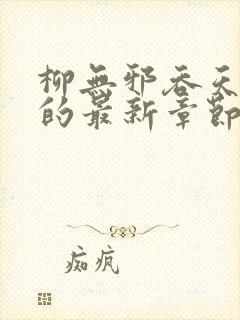 柳無邪吞天
的最新章節
痴疯